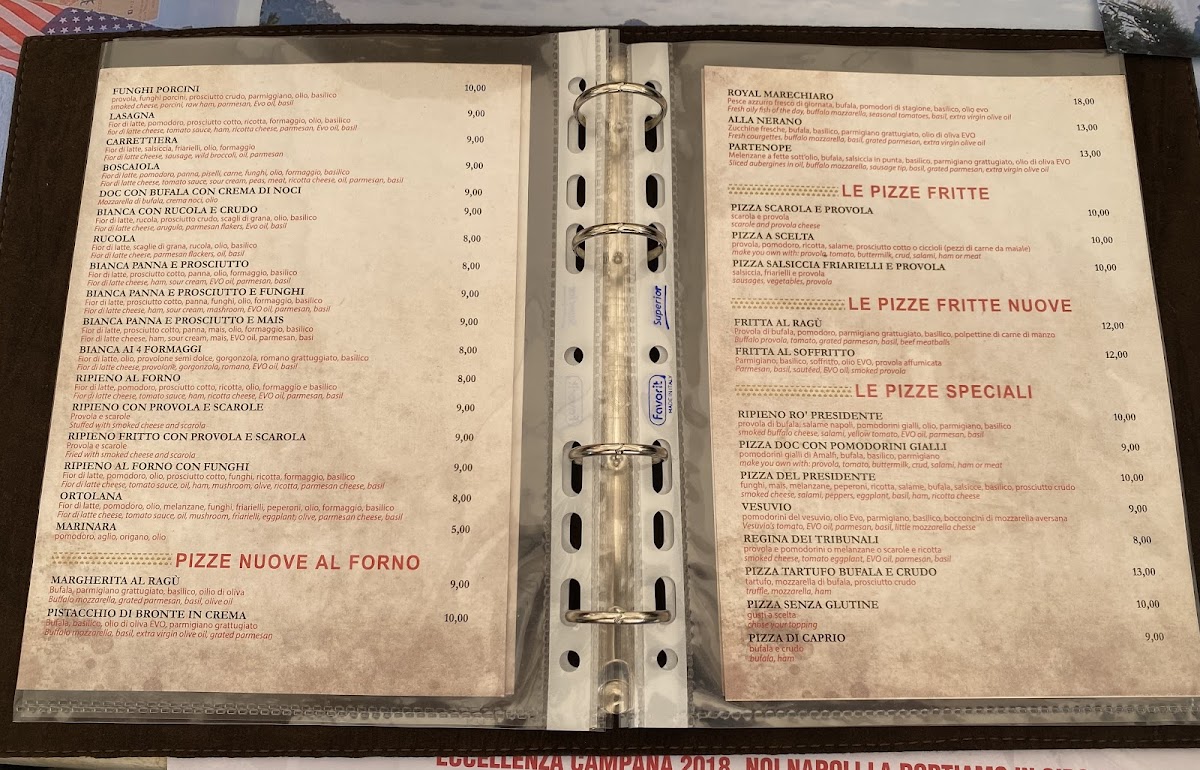 FUNGHI PORCINI 10,00
provola, funghi porcini, prosciutto crudo, parmiggiano, olio, basilico
smoked cheese, porcini, raw ham, parmesan, Evo oil, basil
LASAGNA 9,00
Fior di latte, pomodoro, prosciutto cotto, ricotta, formaggio, olio, basilico
fior di latte cheese, tomato sauce, ham, ricotta cheese, parmesan, Evo oil, basil
CARRETTIERA 9,00
Fior di latte, salsiccia, friarielli, olio, formaggio
Fior di latte cheese, sausage, wild broccoli, oil, parmesan
BOSCAIOLA 9,00
Fior di latte, pomodoro, panna, piselli, carne, funghi, olio, formaggio, basilico
Fior di latte cheese, tomato sauce, sour cream, peas, meat, ricotta cheese, oil, parmesan, basil
DOC CON BUFALA CON CREMA DI NOCI 9,00
Mozzarella di bufala, crema noci, olio
BIANCA CON RUCOLA E CRUDO 9,00
Fior di latte, rucola, prosciutto crudo, scagli di grana, olio, basilico
Fior di latte cheese, arugula, parmesan flakers, Evo oil, basil
RUCOLA 8,00
Fior di latte, scaglie di grana, rucola, olio, basilico
Fior di latte cheese, parmesan flackers, oil, basil
BIANCA PANNA E PROSCIUTTO 8,00
Fior di latte, prosciutto cotto, panna, olio, formaggio, basilico
Fior di latte cheese, ham, sour cream, EVO oil, parmesan, basil
BIANCA PANNA E PROSCIUTTO E FUNGHI 9,00
Fior di latte, prosciutto cotto, panna, funghi, olio, formaggio, basilico
Fior di latte cheese, ham, sour cream, mashroom, EVO oil, parmesan, basil
BIANCA PANNA E PROSCIUTTO E MAIS 9,00
Fior di latte, prosciutto cotto, panna, mais, olio, formaggio, basilico
Fior di latte cheese, ham, sour cream, mais, EVO oil, parmesan, basi
BIANCA AI 4 FORMAGGI 8,00
Fior di latte, olio, provolone semi dolce, gorgonzola, romano grattuggiato, basilico
Fior di latte cheese, provolone, gorgonzola, romano, EVO oil, basil
RIPIENO AL FORNO 8,00
Fior di latte, pomodoro, prosciutto cotto, ricotta, olio, formaggio e basilico
Fior di latte cheese, tomato sauce, ham, ricotta cheese, EVO oil, parmesan, basil
RIPIENO CON PROVOLA E SCAROLE 9,00
Provola e scarole
Stuffed with smoked cheese and scarola
RIPIENO FRITTO CON PROVOLA E SCAROLA 9,00
Provola e scarole
Fried with smoked cheese and scarola
RIPIENO AL FORNO CON FUNGHI 9,00
Fior di latte, pomodoro, olio, prosciutto cotto, funghi, ricotta, formaggio, basilico
Fior di latte cheese, tomato sauce, oil, ham, mushroom, olive, ricotta, parmesan cheese, basil
ORTOLANA 8,00
Fior di latte, pomodoro, olio, melanzane, funghi, friarielli, peperoni, olio, formaggio, basilico
Fior di latte cheese, tomato sauce, oil, mushroom, friarielli, eggplant, olive, parmesan cheese, basil
MARINARA 5,00
pomodoro, aglio, origano, olio
PIZZE NUOVE AL FORNO
MARGHERITA AL RAGÙ 9,00
Bufala, parmigiano grattugiato, basilico, oilio di oliva
Buffalo mozzarella, grated parmesan, basil, olive oil
PISTACCHIO DI BRONTE IN CREMA 10,00
Bufala, basilico, olio di oliva EVO, parmigiano grattugiato
Buffalo mozzarella, basil, extra virgin olive oil, grated parmesan
Superior
Favorit
MADE IN ITALY
ROYAL MARECHIARO 18,00
Pesce azzurro fresco di giornata, bufala, pomodori di stagione, basilico, olio evo
Fresh oily fish of the day, buffalo mozzarella, seasonal tomatoes, basil, extra virgin olive oil
ALLA NERANO 13,00
Zucchine fresche, bufala, basilico, parmigiano grattugiato, olio di oliva EVO
Fresh courgettes, buffalo mozzarella, basil, grated parmesan, extra virgin olive oil
PARTENOPE 13,00
Melenzane a fette sott'olio, bufala, salsiccia in punta, basilico, parmigiano grattugiato, olio di oliva EVO
Sliced aubergines in oil, buffalo mozzarella, sausage tip, basil, grated parmesan, extra virgin olive oil
LE PIZZE FRITTE
PIZZA SCAROLA E PROVOLA 10,00
scarola e provola
scarole and provola cheese
PIZZA A SCELTA 10,00
provola, pomodoro, ricotta, salame, prosciutto cotto o ciccioli (pezzi di carne da maiale)
make you own with: provola, tomato, buttermilk, crud, salami, ham or meat
PIZZA SALSICCIA FRIARIELLI E PROVOLA 10,00
salsiccia, friarielli e provola
sausages, vegetables, provola
LE PIZZE FRITTE NUOVE
FRITTA AL RAGÙ 12,00
Provola di bufala, pomodoro, parmigiano grattugiato, basilico, polpettine di carne di manzo
Buffalo provola, tomato, grated parmesan, basil, beef meatballs
FRITTA AL SOFFRITTO 12,00
Parmigiano, basilico, soffritto, olio EVO, provola affumicata
Parmesan, basil, sautéed, EVO oil, smoked provola
LE PIZZE SPECIALI
RIPIENO RO' PRESIDENTE 10,00
provola di bufala, salame napoli, pomodorini gialli, olio, parmigiano, basilico
smoked buffalo cheese, salami, yellow tomato, EVO oil, parmesan, basil
PIZZA DOC CON POMODORINI GIALLI 9,00
pomodorini gialli di Amalfi, bufala, basilico, parmigiano
make you own with: provola, tomato, buttermilk, crud, salami, ham or meat
PIZZA DEL PRESIDENTE 10,00
funghi, mais, melanzane, peperoni, ricotta, salame, bufala, salsicce, basilico, prosciutto crudo
smoked cheese, salami, peppers, eggplant, basil, ham, ricotta cheese
VESUVIO 9,00
pomodorini del vesuvio, olio Evo, parmigiano, basilico, bocconcini di mozzarella aversana
Vesuvio's tomato, EVO oil, parmesan, basil, little mozzarella chesse
REGINA DEI TRIBUNALI 8,00
provola e pomodorini o melanzane o scarole e ricotta
smoked cheese, tomato eggplant, EVO oil, parmesan, basil
PIZZA TARTUFO BUFALA E CRUDO 13,00
tartufo, mozzarella di bufala, prosciutto crudo
truffle, mozzarella, ham
PIZZA SENZA GLUTINE 10,00
gusti a scelta
chose your topping
PIZZA DI CAPRIO 9,00
bufala e crudo
bufala, ham
ECCELLENZA CAMPANA 2018. NOI NAPOLI LA PORTIAMO IN